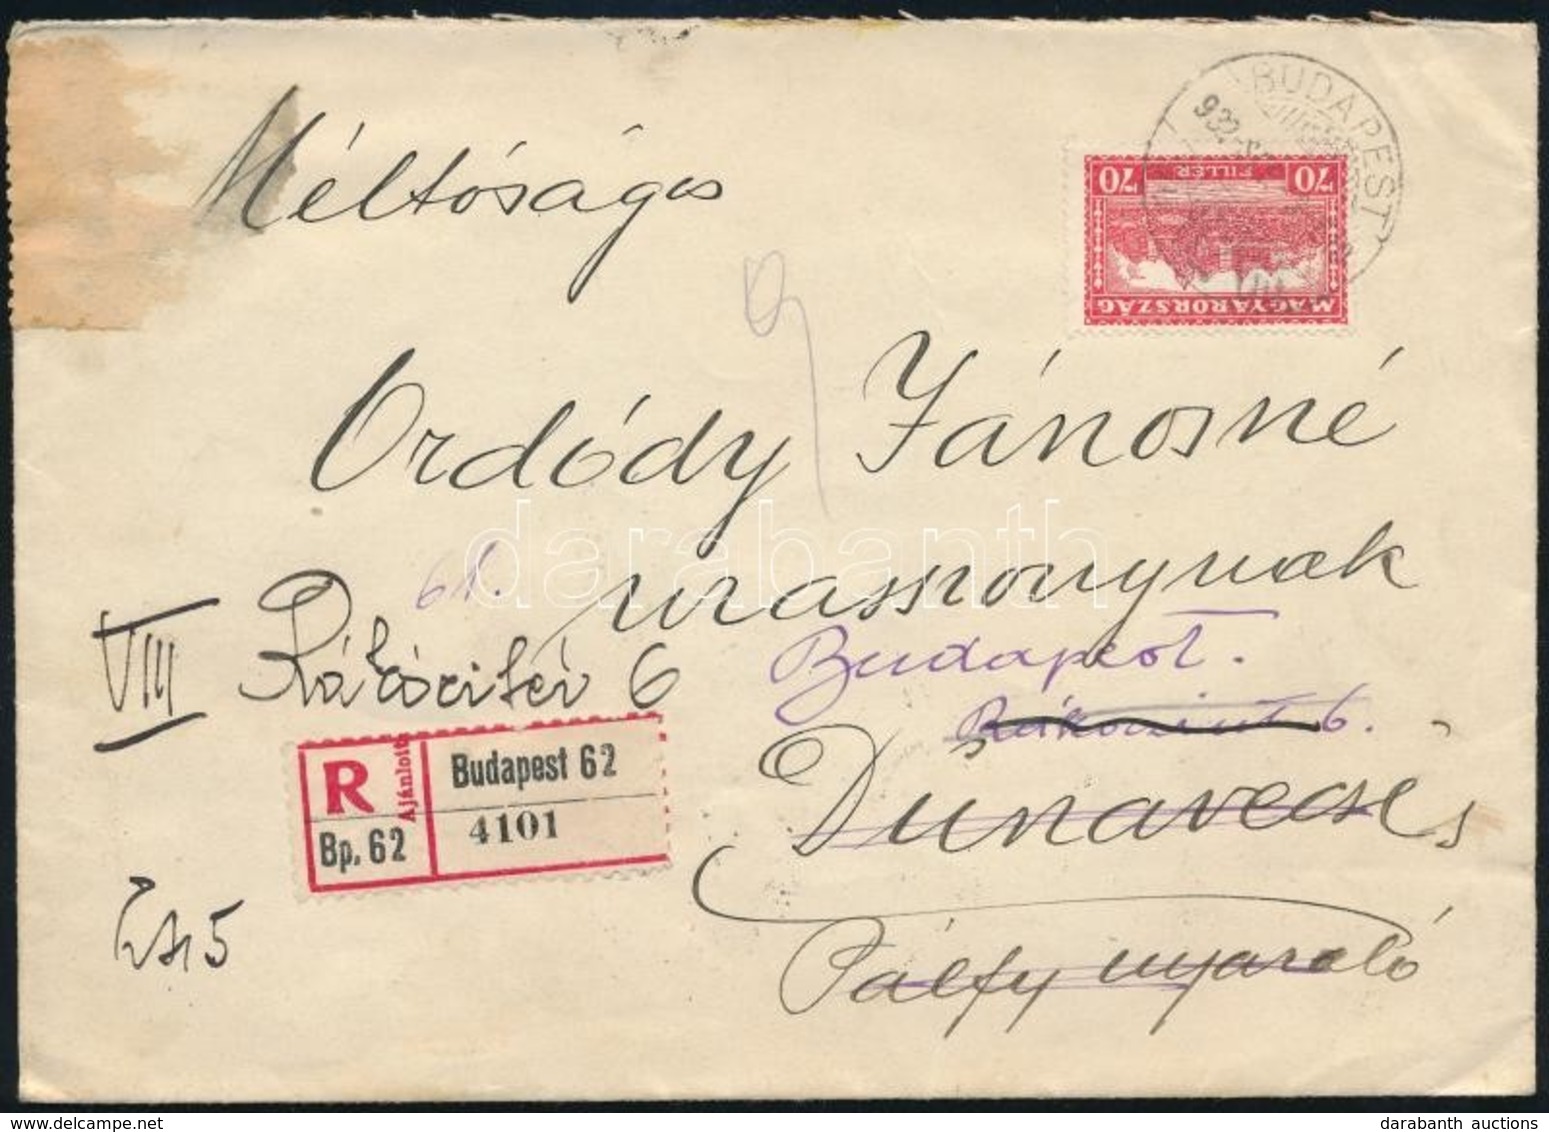 Méltóságos
BUDAPEST
932
70 FILLÉR 70
MAGYARORSZÁG
Ordódy Jánosné
61.
úrasszonynak
VIII Rákóczi tér 6
Budapest.
6.
R Ajánlott
Budapest 62
Bp. 62
4101
Dunavecse
Pálfy nyaraló
darabanth
delcampe.net
darabanth auctions